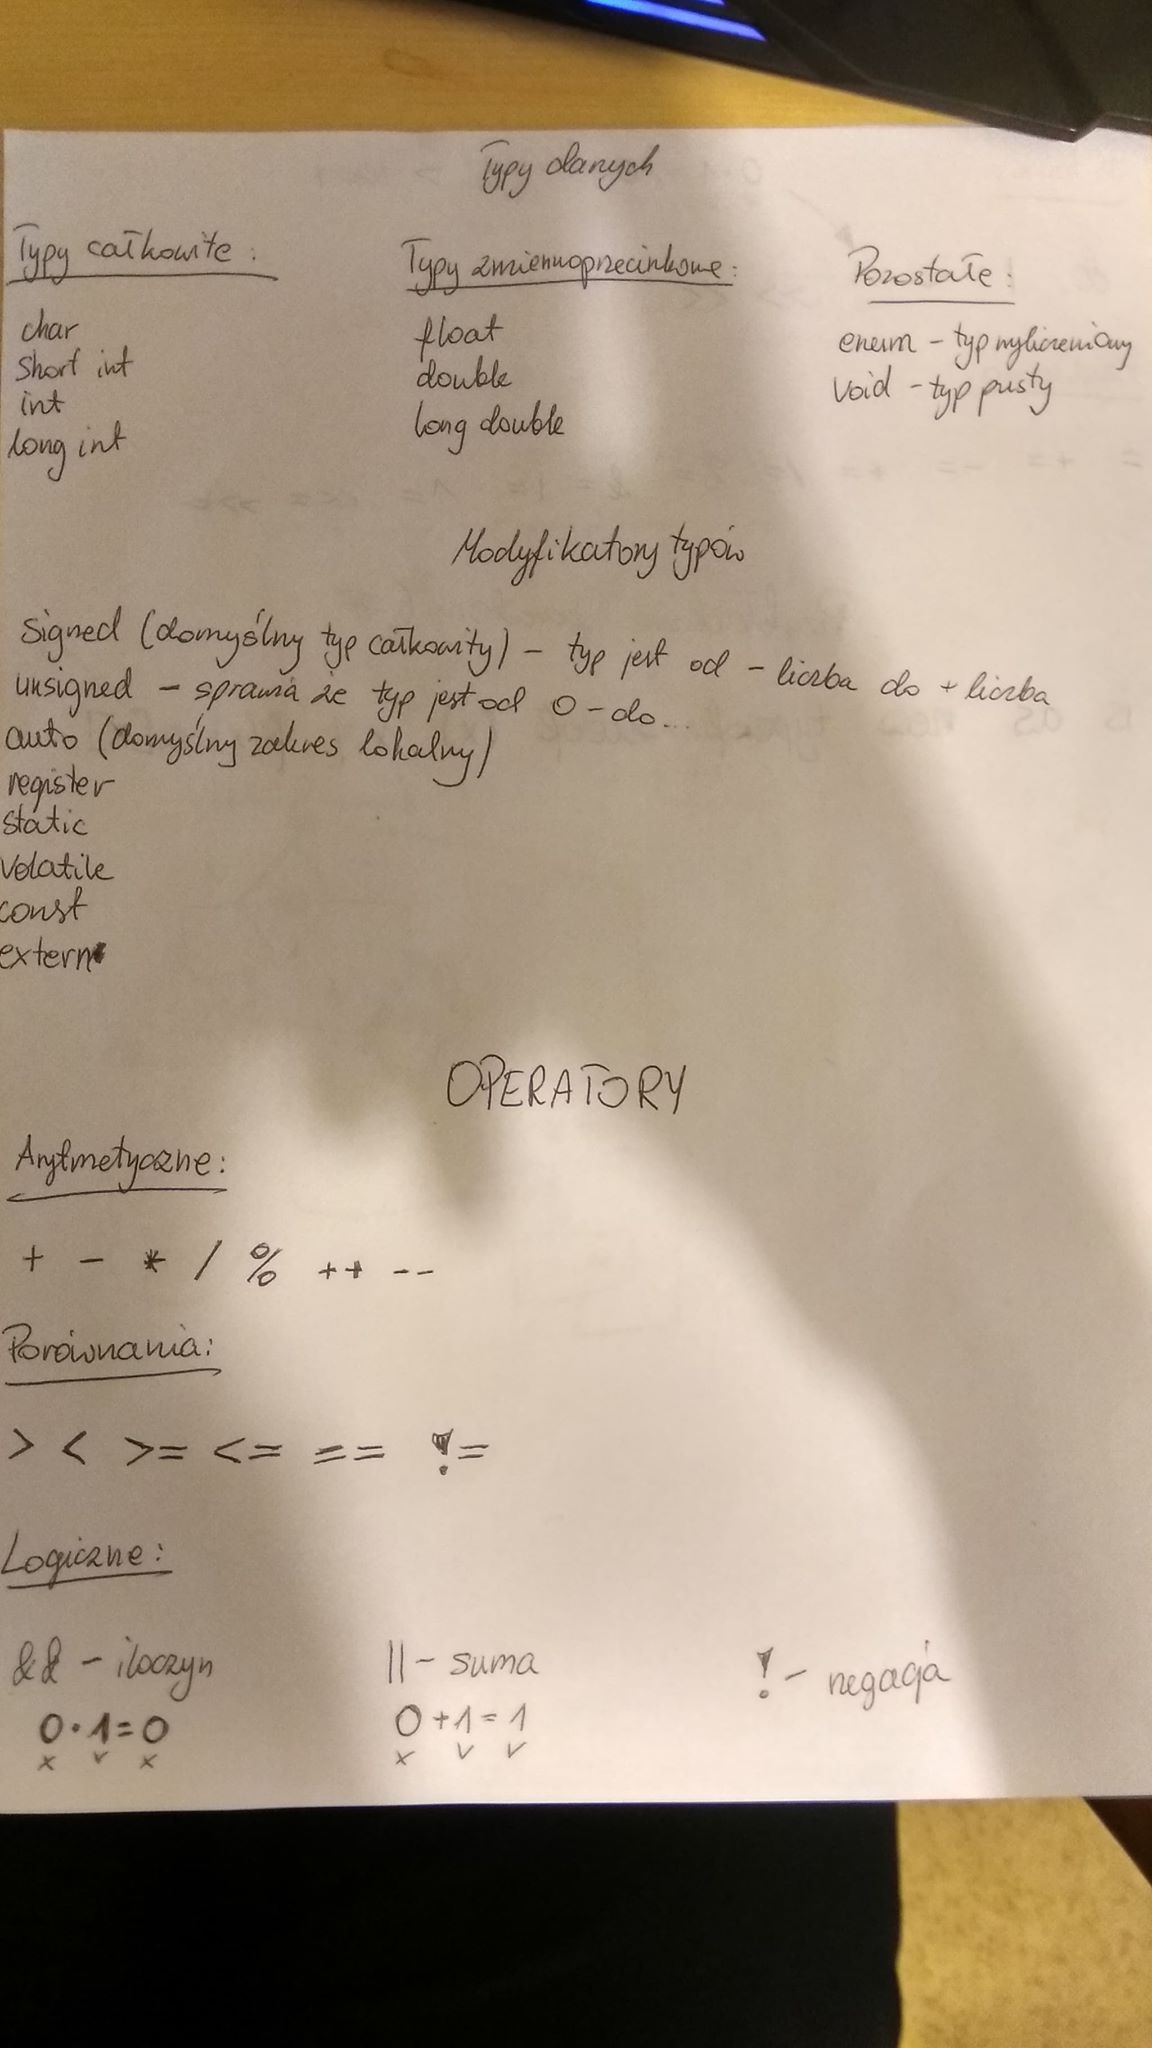 Typy danych
Typy całkowite:
char
short int
int
long int
Typy zmiennoprzecinkowe:
float
double
long double
Pozostałe:
enum - typ wyliczeniowy
void - typ pusty
Modyfikatory typów
signed (domyślny typ całkowity) - typ jest od - liczba do + liczba
unsigned - sprawia że typ jest od 0 - do...
auto (domyślny zakres lokalny)
register
static
volatile
const
extern
OPERATORY
Arytmetyczne:
+ - * / % ++ --
Porównania:
> < >= <= == !=
Logiczne:
&& - iloczyn
0 · 1 = 0
x v x
|| - suma
0 + 1 = 1
x v v
! - negacja